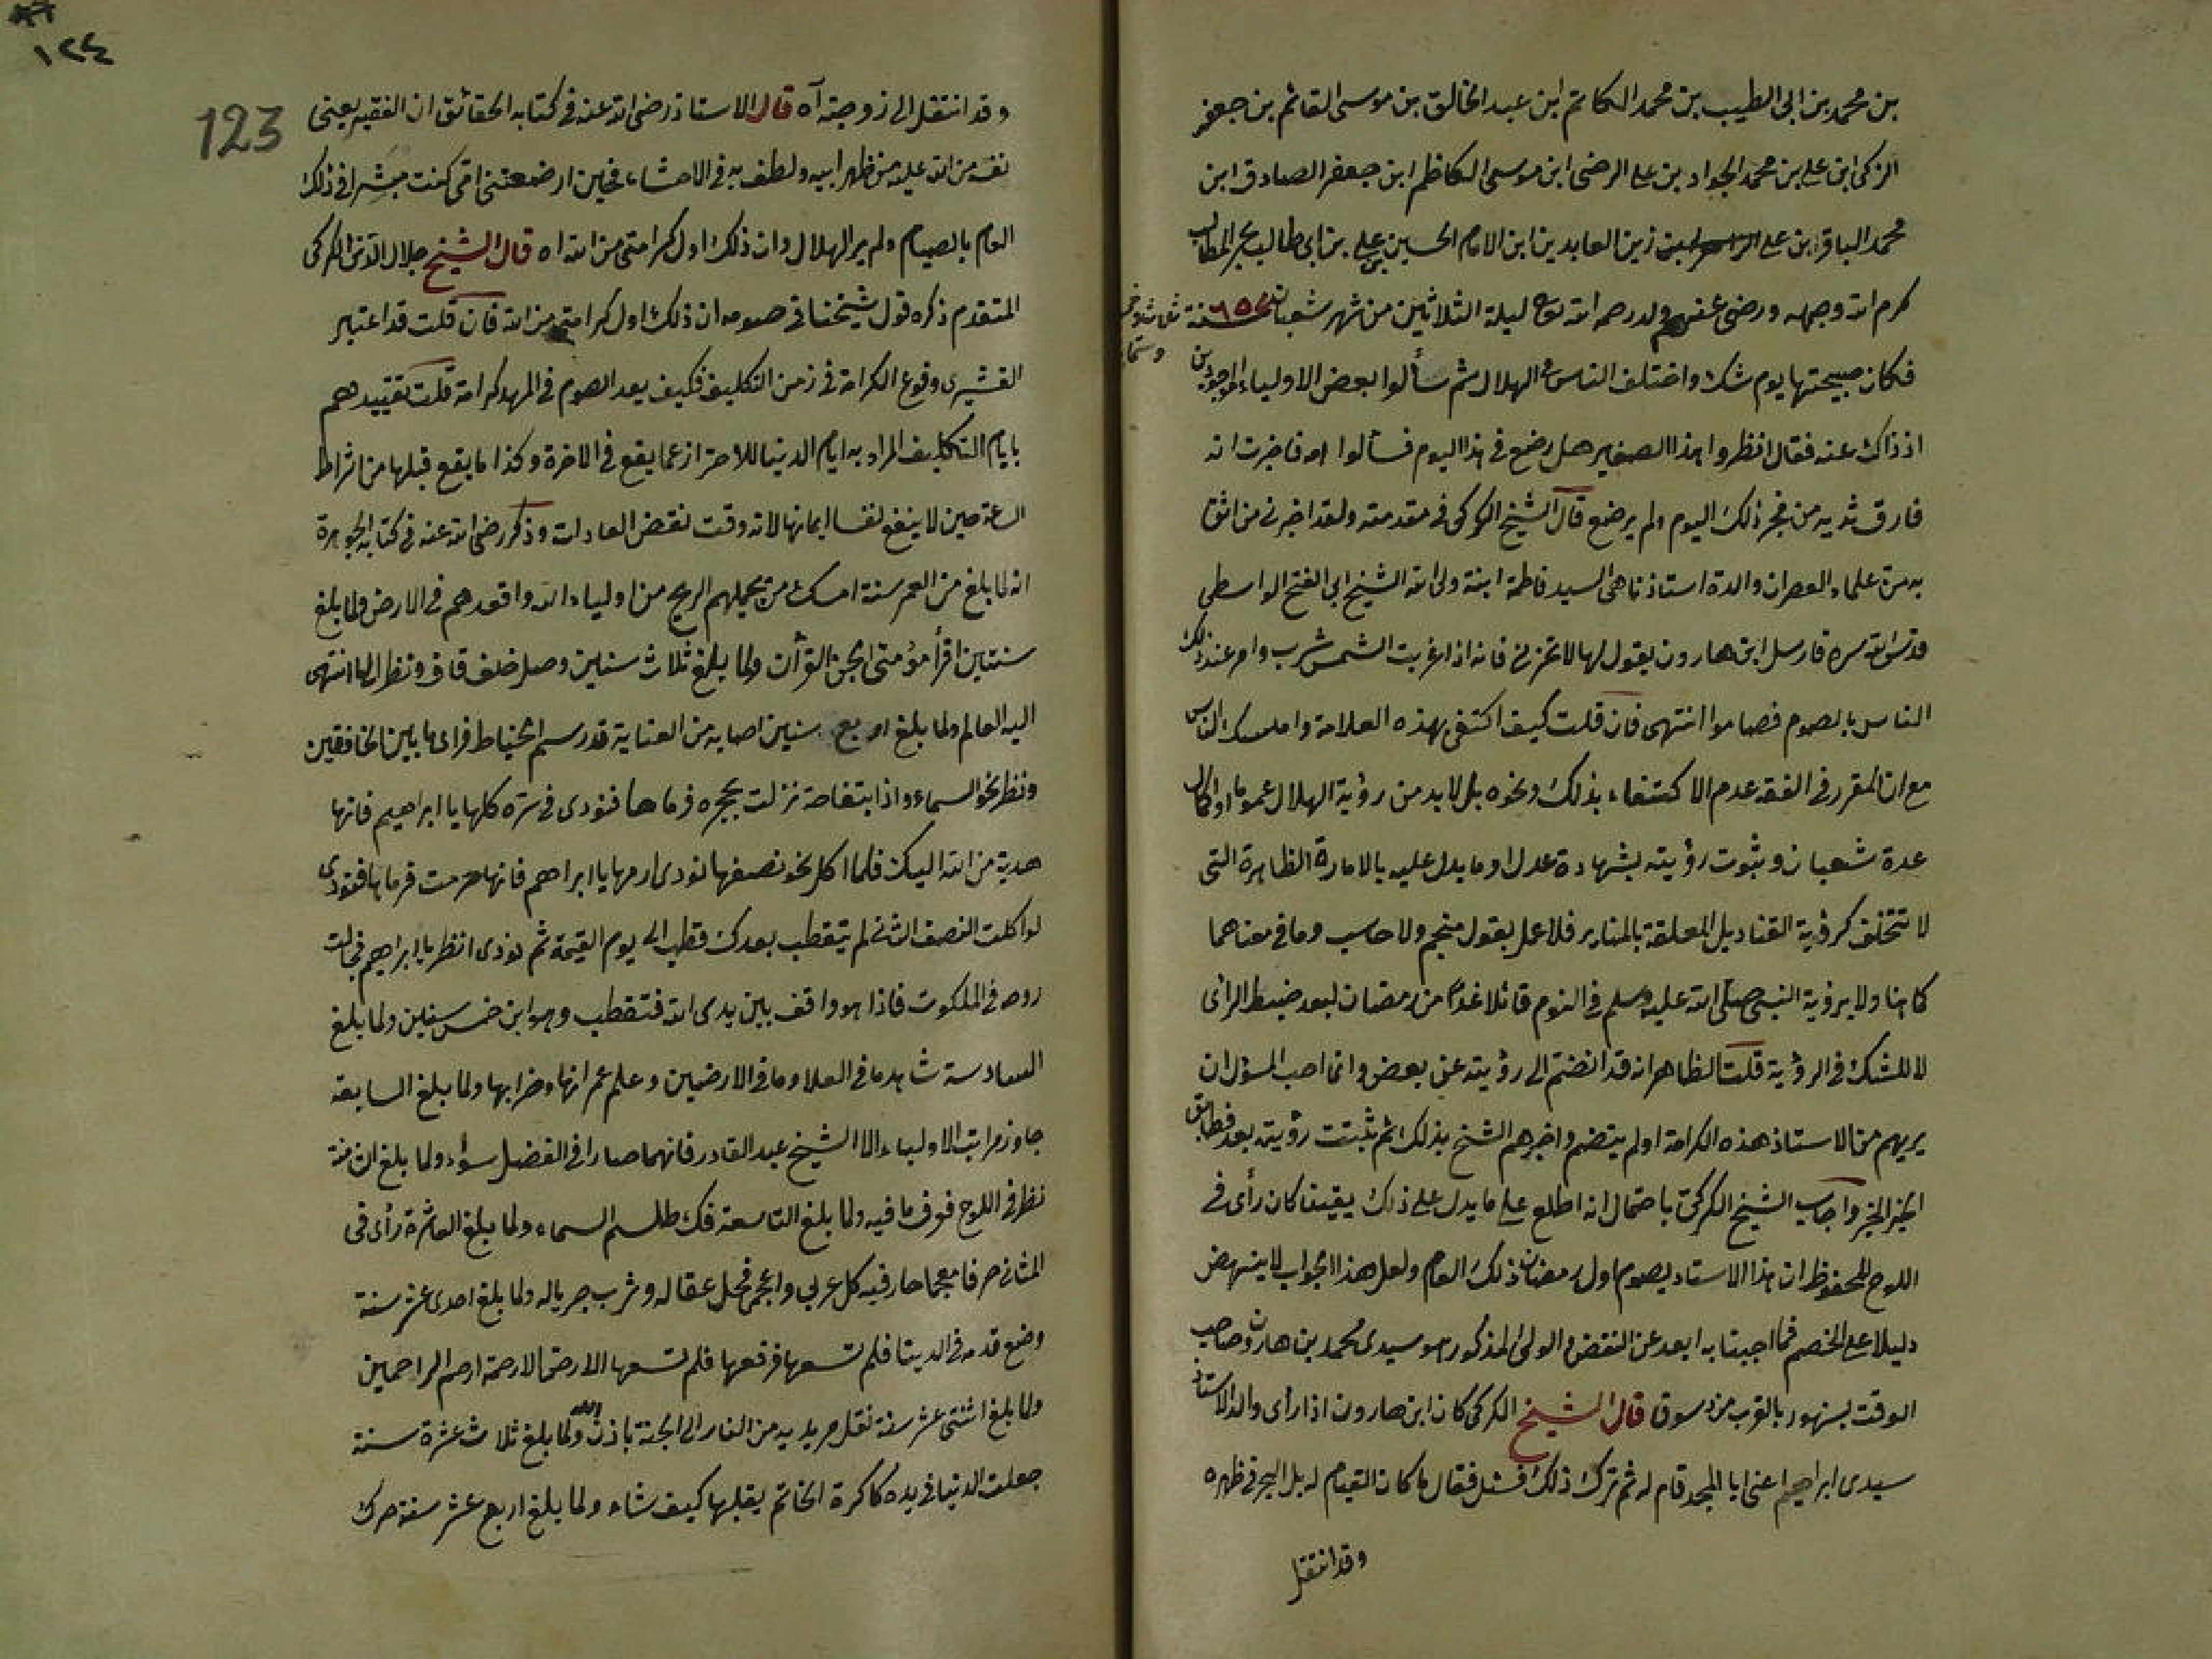 بن محمد بن ابى الطيب بن محمد الكاتم ابن عبد الخالق بن موسى القائم بن جعفر
الزكى ابن على بن محمد الجواد بن على الرضى ابن موسى الكاظم ابن جعفر الصادق ابن
محمد الباقر ابن على زين العابدين ابن الامام الحسين بن على بن ابى طالب
كرم الله وجهه ورضى عنهم ولد رحمه الله ليلة الثلاثين من شهر شعبان سنة ٦٥٣
فكان صبيحتها يوم شك واختلف الناس فى الهلال ثم سألوا بعض الاولياء الموجودين
اذ ذاك عنه فقال انظروا هذا الصغير هل رضع فى هذا اليوم فسألوا امه فاخبرت انه
فارق ثديه من فجر ذلك اليوم ولم يرضع قال الشيخ الكركى فى مقدمته ولقد اخبرنى من اثق
به من علماء العصر ان والدة استاذنا هى السيد فاطمة ابنة ولى الله الشيخ ابى الفتح الواسطى
قدس الله سره فارسل ابن هارون يقول لها لا تحزنى فانه اذا غربت الشمس شرب وامر عند ذلك
الناس بالصوم فصاموا انتهى فان قلت كيف اكتفى بهذه العلامة وامسك الناس
مع ان المقرر فى الفقه عدم الاكتفاء بذلك ونحوه بل لا بد من رؤية الهلال عموما او اكمال
عدة شعبان وثبوت رؤيته بشهادة عدل او ما يدل عليه بالامارة الظاهرة التى
لا تتخلف كرؤية القناديل المعلقة بالمناير فلا عمل بقول منجم ولا حاسب وما فى معناهما
كاهنا ولا برؤية النبى صلى الله عليه وسلم فى النوم قائلا غدا من رمضان لبعد ضبط الرائى
لا للشك فى الرؤية قلت الظاهر انه قد انضم الى رؤيته عن بعض وانما احب المسؤل ان
يريهم من الاستاذ هذه الكرامة او لم ينضم واخبرهم الشيخ بذلك ثم ثبتت رؤيته بعد فطابق
الخبر الخبر واجاب الشيخ الكركى باحتمال انه اطلع على ما يدل على ذلك يقينا كان رأى فى
اللوح المحفوظ ان هذا الاستاد يصوم اول رمضان ذلك العام ولعل هذا الجواب لا ينهض
دليلا على الخصم فما اجبنا به ابعد عن النقض والولى المذكور هو سيدى محمد بن هارون صاحب
الوقت بسنهور بالقرب من دسوق قال الشيخ الكركى كان ابن هارون اذا رأى والد الاستاذ
سيدى ابراهيم اعنى ابا المجد قام له ثم ترك ذلك فسئل فقال ما كان القيام له بل البحر فى ظهره
وقد انتقل
123
١٢٤
وقد انتقل الى زوجته آه قال الاستاذ رضى الله عنه فى كتابه الحقائق ان الفقير يعنى
نفسه من الله عليه من ظهر ابيه ولطف به فى الاحشاء فحين ارضعتنى امى كنت مبشرا فى ذلك
العام بالصيام ولم ير الهلال وان ذلك اول كرامتى من الله اه قال الشيخ جلال الدين الكركى
المتقدم ذكره قول شيخنا فى صومه ان ذلك اول كرامتى من الله فان قلت قد اعتبر
القشيرى وقوع الكرامة فى زمن التكليف فكيف يعد الصوم فى المهد كرامة قلت تقييدهم
بايام التكليف المراد به ايام الدنيا للاحتراز عما يقع فى الاخرة وكذا ما يقع قبلها من اشراط
الساعة حين لا ينفع نفسا ايمانها لانه وقت نقض العادات وذكر رضى الله عنه فى كتابه الجوهرة
انه لما بلغ من العمر سنة امسك من يحملهم الريح من اولياء الله واقعدهم فى الارض ولما بلغ
سنتين اقرأ مؤمنى الجن القرأن ولما بلغ ثلاث سنين وصل خلف قاف ونظر الى ما انتهى
اليه العالم ولما بلغ اربع سنين اصابه من العناية قدر سم الخياط فراى ما بين الخافقين
ونظر نحو السماء واذا بتفاحة نزلت بحجره فرماها فنودى فى سره كلها يا ابراهيم فانها
هدية من الله اليك فلما اكل نحو نصفها نودى ارمها يا ابراهيم فانها حرمت فرماها فنودى
لو اكلت النصف الثانى لم يتقطب بعدك قطب الى يوم القيمة ثم نودى انظر يا ابراهيم فجالت
روحه فى الملكوت فاذا هو واقف بين يدى الله فتقطب وهو ابن خمس سنين ولما بلغ
السادسة شاهد ما فى العلا وما فى الارضين وعلم عمرانها وخرابها ولما بلغ السابعة
جاوز مراتب الاولياء الا الشيخ عبد القادر فانهما صارا فى الفضل سواء ولما بلغ الثامنة
نظر فى اللوح فعرف ما فيه ولما بلغ التاسعة فك طلسم السماء ولما بلغ العاشرة رأى فى
المثانى حرفا معجما حار فيه كل عربى واعجمى فحل عقاله وشرب جرياله ولما بلغ احدى عشر سنة
وضع قدمه فى الدنيا فلم تسعها فرفعها فلم تسعها الا رحمة ارحم الراحمين
ولما بلغ اثنتى عشر سنة نقل مريديه من النار الى الجنة باذن الله ولما بلغ ثلاث عشرة سنة
جعلت الدنيا فى يده كاكرة الخاتم يقلبها كيف شاء ولما بلغ اربع عشر سنة حرك